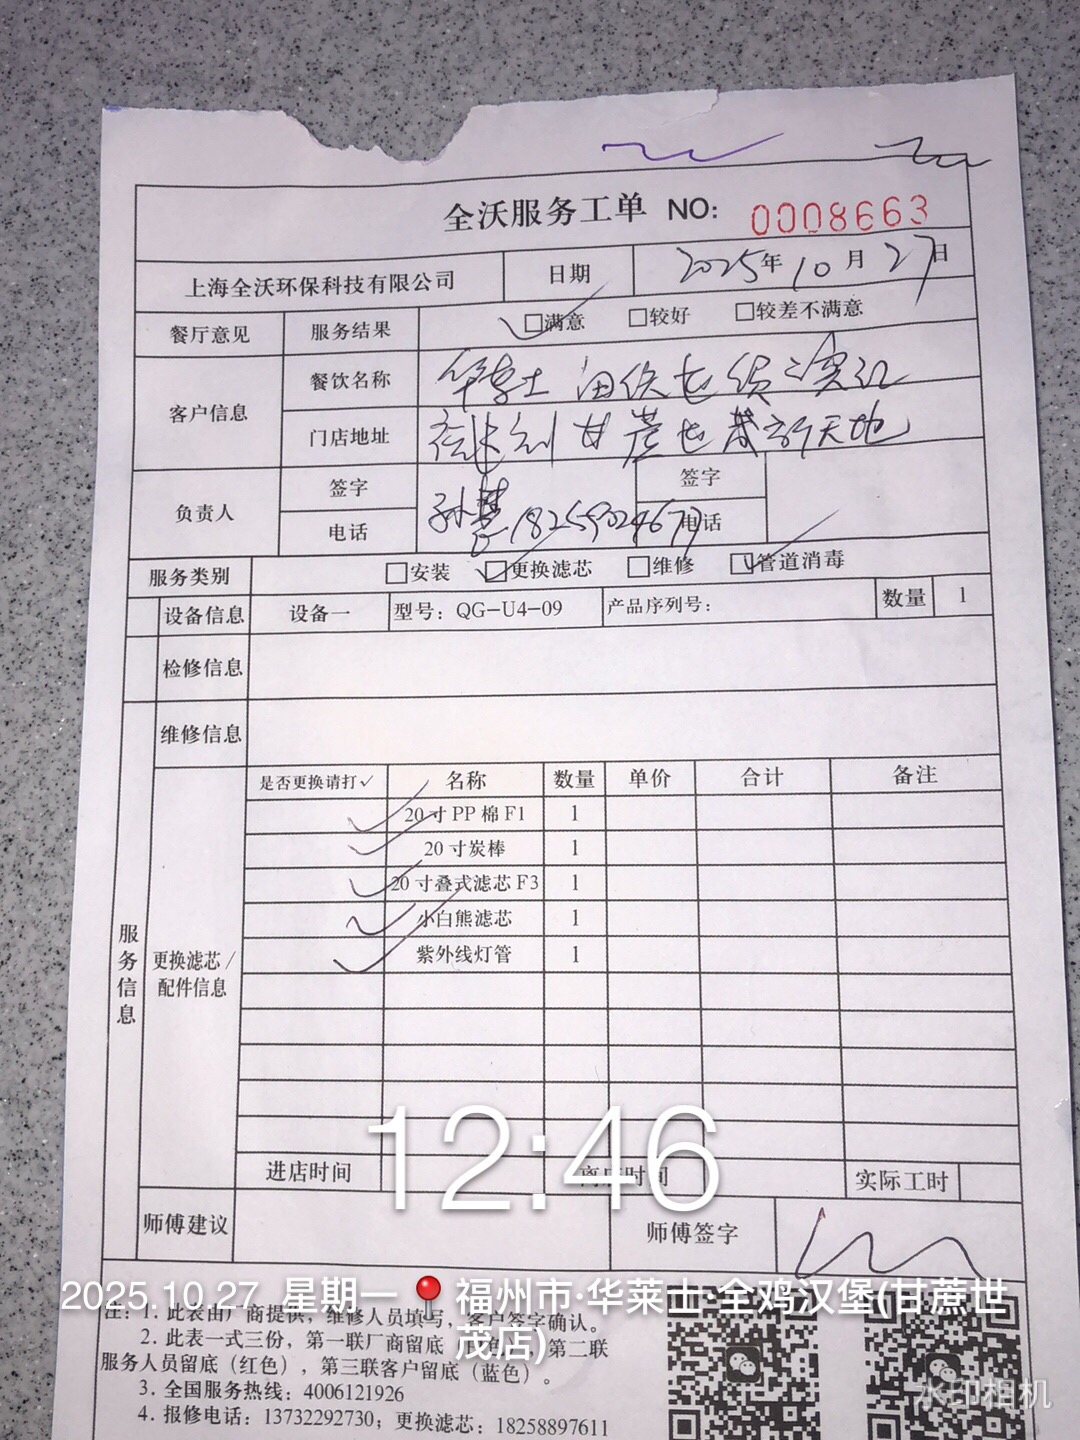 全沃服务工单 NO: 0008663
上海全沃环保科技有限公司 日期 2025年10月27日
餐厅意见 服务结果 ☑满意 □较好 □较差不满意
客户信息 餐饮名称 华莱士
门店地址 甘蔗世茂新天地
负责人 签字 孙慧 签字
电话 电话
服务类别 □安装 ☑更换滤芯 □维修 ☑管道消毒
设备信息 设备一 型号：QG-U4-09 产品序列号： 数量 1
检修信息
维修信息
服务信息
更换滤芯/配件信息
是否更换请打✓ 名称 数量 单价 合计 备注
✓ 20寸PP棉F1 1
✓ 20寸炭棒 1
✓ 20寸叠式滤芯F3 1
✓ 小白熊滤芯 1
✓ 紫外线灯管 1
进店时间 离店时间 实际工时
12:46
师傅建议 师傅签字
2025.10.27 星期一 福州市·华莱士·全鸡汉堡(甘蔗世
茂店)
注：1. 此表由厂商提供，维修人员填写，客户签字确认。
2. 此表一式三份，第一联厂商留底 第二联
服务人员留底（红色），第三联客户留底（蓝色）。
3. 全国服务热线：4006121926
4. 报修电话：13732292730；更换滤芯：18258897611
水印相机